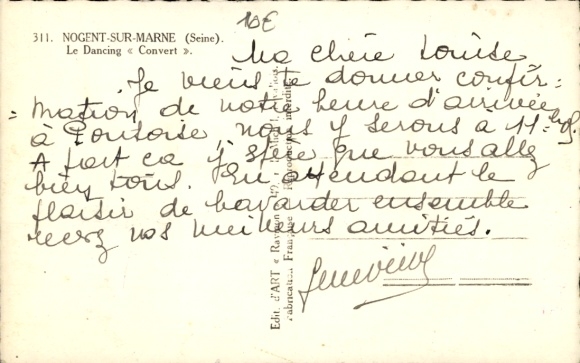 10E
311. NOGENT-SUR-MARNE (Seine).
Le Dancing « Convert ».
Ma chère Louise
Je viens te donner confir-
-mation de notre heure d'arrivée
à Pontoise, nous y serons à 11h
A part ça j'espère que vous allez
bien tous. En attendant le
plaisir de bavarder ensemble
recevez nos meilleurs amitiés.
Geneviève
Edit. d'ART « Ray
Fabrication Française Reproduction interdite